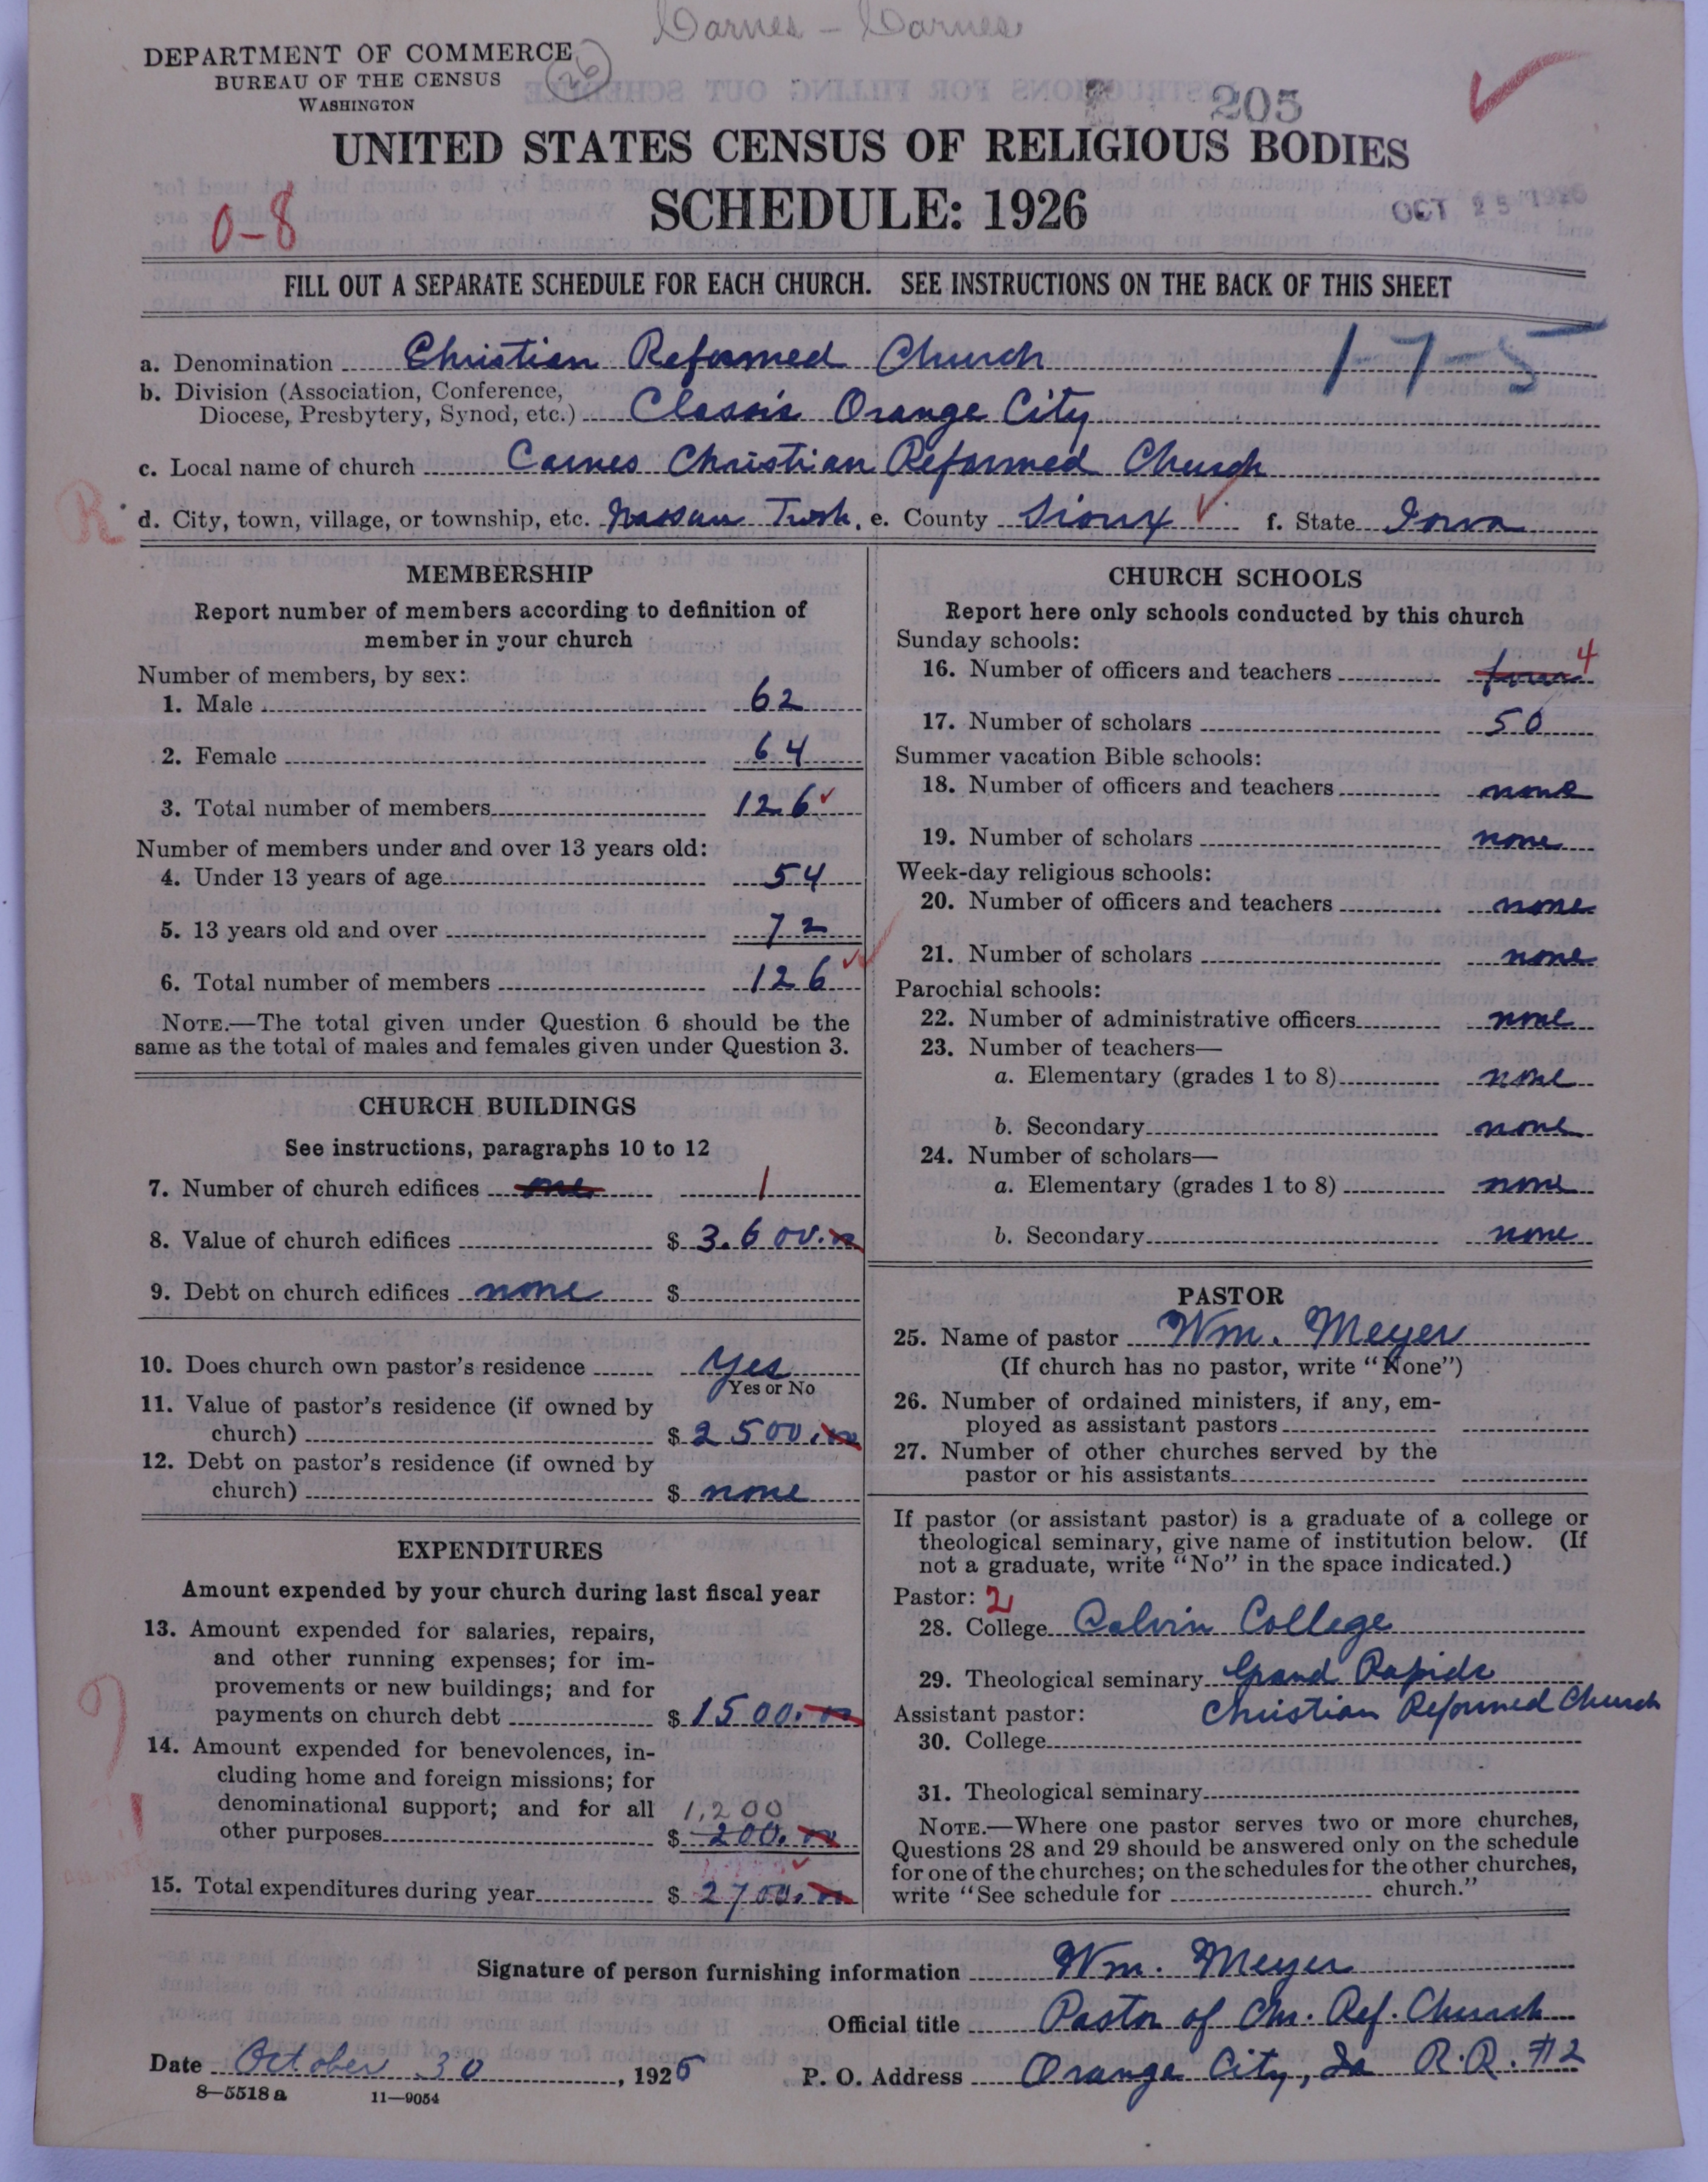 Carnes - Carnes
DEPARTMENT OF COMMERCE
BUREAU OF THE CENSUS
WASHINGTON
26
205
UNITED STATES CENSUS OF RELIGIOUS BODIES
SCHEDULE: 1926
OCT 25 1926
0-8
FILL OUT A SEPARATE SCHEDULE FOR EACH CHURCH. SEE INSTRUCTIONS ON THE BACK OF THIS SHEET
1-7-5
a. Denomination Christian Reformed Church
b. Division (Association, Conference,
Diocese, Presbytery, Synod, etc.) Classis Orange City
c. Local name of church Carnes Christian Reformed Church
R
d. City, town, village, or township, etc. Nassau Twsh. e. County Sioux f. State Iowa
MEMBERSHIP
Report number of members according to definition of
member in your church
Number of members, by sex:
1. Male 62
2. Female 64
3. Total number of members 126
Number of members under and over 13 years old:
4. Under 13 years of age 54
5. 13 years old and over 72
6. Total number of members 126
NOTE.—The total given under Question 6 should be the
same as the total of males and females given under Question 3.
CHURCH BUILDINGS
See instructions, paragraphs 10 to 12
7. Number of church edifices one 1
8. Value of church edifices $ 3.600.00
9. Debt on church edifices none $
10. Does church own pastor's residence Yes
Yes or No
11. Value of pastor's residence (if owned by
church) $ 2500.00
12. Debt on pastor's residence (if owned by
church) $ none
EXPENDITURES
Amount expended by your church during last fiscal year
13. Amount expended for salaries, repairs,
and other running expenses; for im-
provements or new buildings; and for
payments on church debt $ 1500.00
14. Amount expended for benevolences, in-
cluding home and foreign missions; for
denominational support; and for all 1,200
other purposes $ 200.00
15. Total expenditures during year $ 2700.00
CHURCH SCHOOLS
Report here only schools conducted by this church
Sunday schools:
16. Number of officers and teachers four 4
17. Number of scholars 50
Summer vacation Bible schools:
18. Number of officers and teachers none
19. Number of scholars none
Week-day religious schools:
20. Number of officers and teachers none
21. Number of scholars none
Parochial schools:
22. Number of administrative officers none
23. Number of teachers—
a. Elementary (grades 1 to 8) none
b. Secondary none
24. Number of scholars—
a. Elementary (grades 1 to 8) none
b. Secondary none
PASTOR
25. Name of pastor Wm. Meyer
(If church has no pastor, write "None")
26. Number of ordained ministers, if any, em-
ployed as assistant pastors
27. Number of other churches served by the
pastor or his assistants
If pastor (or assistant pastor) is a graduate of a college or
theological seminary, give name of institution below. (If
not a graduate, write "No" in the space indicated.)
Pastor: 2
28. College Calvin College
29. Theological seminary Grand Rapids
Assistant pastor: Christian Reformed Church
30. College
31. Theological seminary
NOTE.—Where one pastor serves two or more churches,
Questions 28 and 29 should be answered only on the schedule
for one of the churches; on the schedules for the other churches,
write "See schedule for church."
Signature of person furnishing information Wm. Meyer
Official title Pastor of Chr. Ref. Church
Date October 30, 1926 P. O. Address Orange City, Ia R.R. #2
8-5518a 11-9054